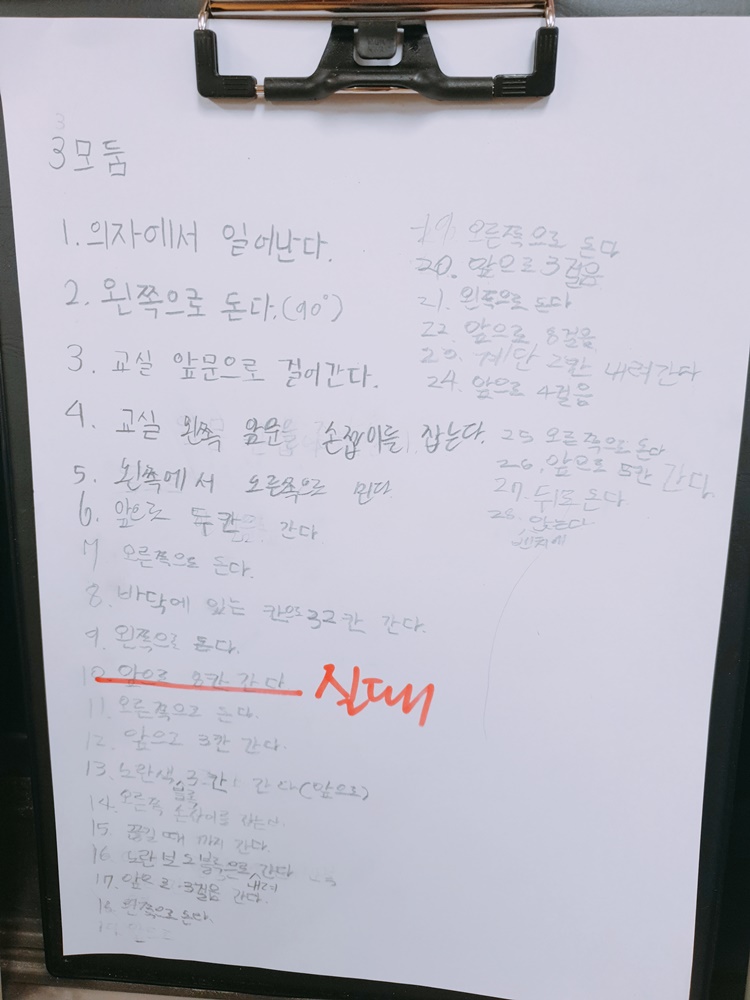 3
3모둠
1. 의자에서 일어난다.
2. 왼쪽으로 돈다.(90°)
3. 교실 앞문으로 걸어간다.
4. 교실 왼쪽 앞문 손접이를 잡는다.
5. 왼쪽에서 오른쪽으로 민다
6. 앞으로 두칸 간다.
7 오른쪽으로 돈다.
8. 바닥에 있는 칸으로 32칸 간다.
9. 왼쪽으로 돈다.
10 앞으로 8칸 간다 실패
11. 오른쪽으로 돈다.
12. 앞으로 3칸 간다.
13. 노란색 블록 3칸 간다(앞으로)
14. 오른쪽 손잡이를 잡는다.
15. 끊일때 까지 간다.
16. 노란 보도블록으로 간다
17. 앞으로 3걸음 내려간다.
18. 왼쪽으로 돈다.
19. 오른쪽으로 돈다
20. 앞으로 3걸음
21. 왼쪽으로 돈다
22. 앞으로 8걸음
23. 계단 2칸 내려간다
24. 앞으로 4걸음
25 오른쪽으로 돈다.
26. 앞으로 5칸 간다.
27. 뒤로 돈다
28. 벤치에 앉는다